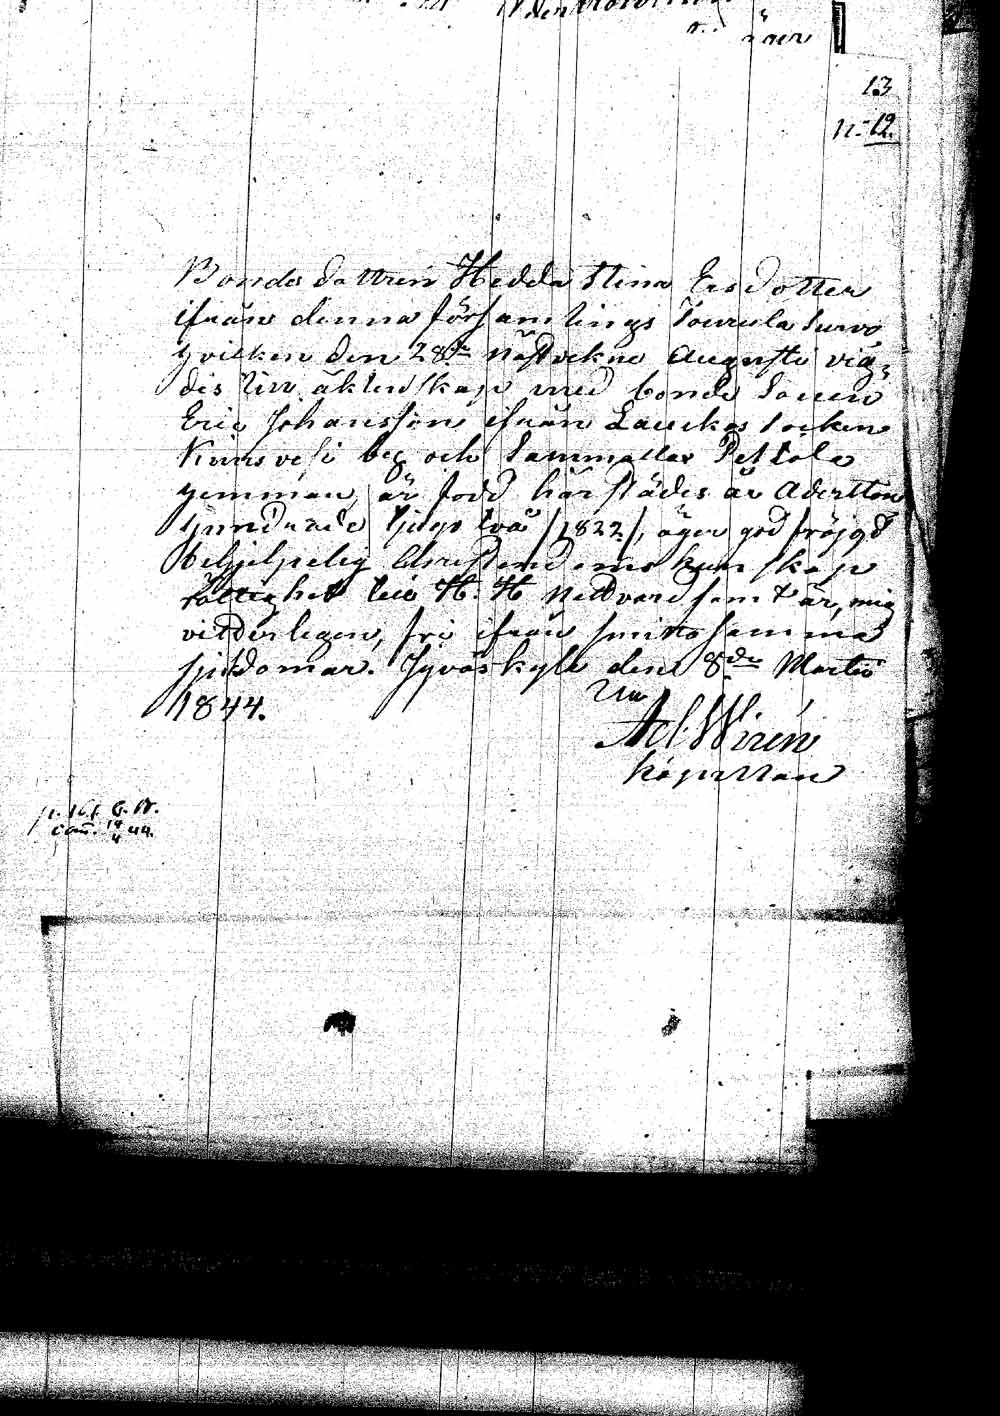 13
N:o 12.
Bonde dottren Hedda Stina Ersdotter
ifrån denna församlings Tourula
hvilken den 28de näst vekne Augusti vig-
des in äktenskap med bonde Sonen
Eric Johansson ifrån Laukas Socken
Kuusvesi by och Sammallax Peltola
hemman, är född härstädes år Adertton
hundrade tjugo två /:1822:/, äger god fräjgd
behjelpelig Christendoms kunskap
rättighet till H. H. Nattvard samt är, mig
vitterligen, fri ifrån smittosamma
sjukdomar. Jyväskylä den 8de Martii
1844.
Ad. Wirén
Kapellan